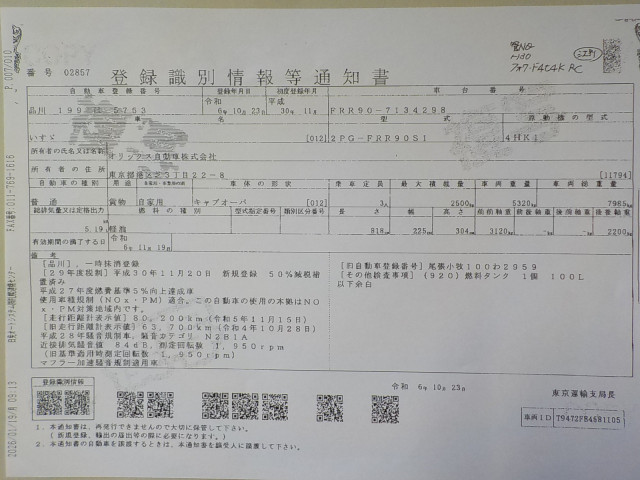 番号 02857 登録識別情報等通知書
自動車登録番号 登録年月日 初度登録年月 車台番号
品川 199 5753 令和 6年10月23日 平成 30年11月 FRR90-7134298
車名 型式 原動機の型式
いすゞ [012] 2PG-FRR90S1 4HK1
所有者の氏名又は名称 オリックス自動車株式会社
所有者の住所 東京都港区芝3丁目22-8 [11794]
自動車の種別 用途 自家用・事業用の別 車体の形状 乗車定員 最大積載量 車両重量 車両総重量
普通 貨物 自家用 キャブオーバ [012] 3人 2500kg 5320kg 7985kg
総排気量又は定格出力 燃料の種類 型式指定番号 類別区分番号 長さ 幅 高さ 前前軸重 前後軸重 後前軸重 後後軸重
5.19 軽油 818cm 225cm 304cm 3120kg -kg -kg 2200kg
有効期間の満了する日 令和 6年11月19日
備考
[品川],一時抹消登録
[29年度税制]平成30年11月20日 新規登録 50%減税措置済み
平成27年度燃費基準5%向上達成車
使用車種規制(NOx・PM)適合。この自動車の使用の本拠はNOx・PM対策地域内です。
[走行距離計表示値]80,200km(令和5年11月15日)
[旧走行距離計表示値]63,700km(令和4年10月28日)
平成28年騒音規制車、騒音カテゴリ N2B1A
近接排気騒音値 84dB,測定回転数 1,950rpm
(旧基準適用時測定回転数 1,950rpm)
マフラー加速騒音規制適用車
[旧自動車登録番号]尾張小牧100わ2959
[その他検査事項](920)燃料タンク 1個 100L
以下余白
登録識別情報
令和 6年10月23日
東京運輸支局長
車両ID 79472F84681105
1.本通知書は、再発行できませんので大切に保管して下さい。
(新規登録、輸出の届出等の際に必要になります。)
2.本通知書の自動車を譲渡するときは、本通知書を譲受人に譲渡して下さい。
P.007/010
FAX番号:011-769-1616
2026/01/19/月 09:13